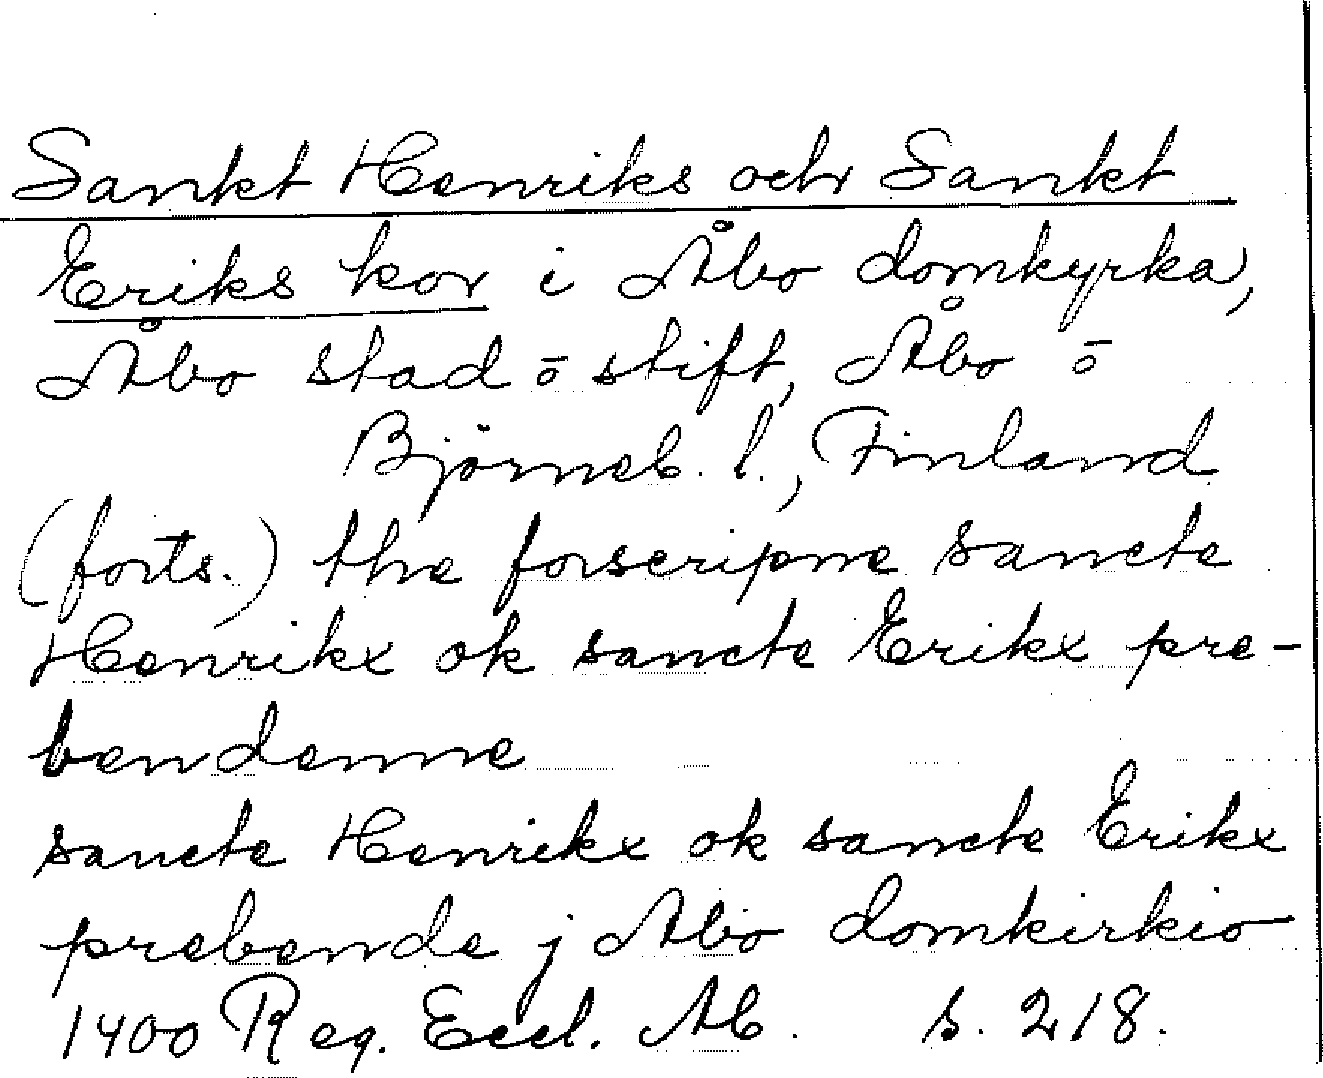 Sankt Henriks och Sankt
Eriks kor i Åbo domkyrka,
Åbo stad o stift, Åbo o
Björneb. l., Finland
(forts.) the forscripne sancte
Henrikx ok sancte Erikx pre-
bendenne
sancte Henrikx ok sancte Erikx
prebende j Abo domkirkio
1400 Reg. Eccl. Ab. s. 218.